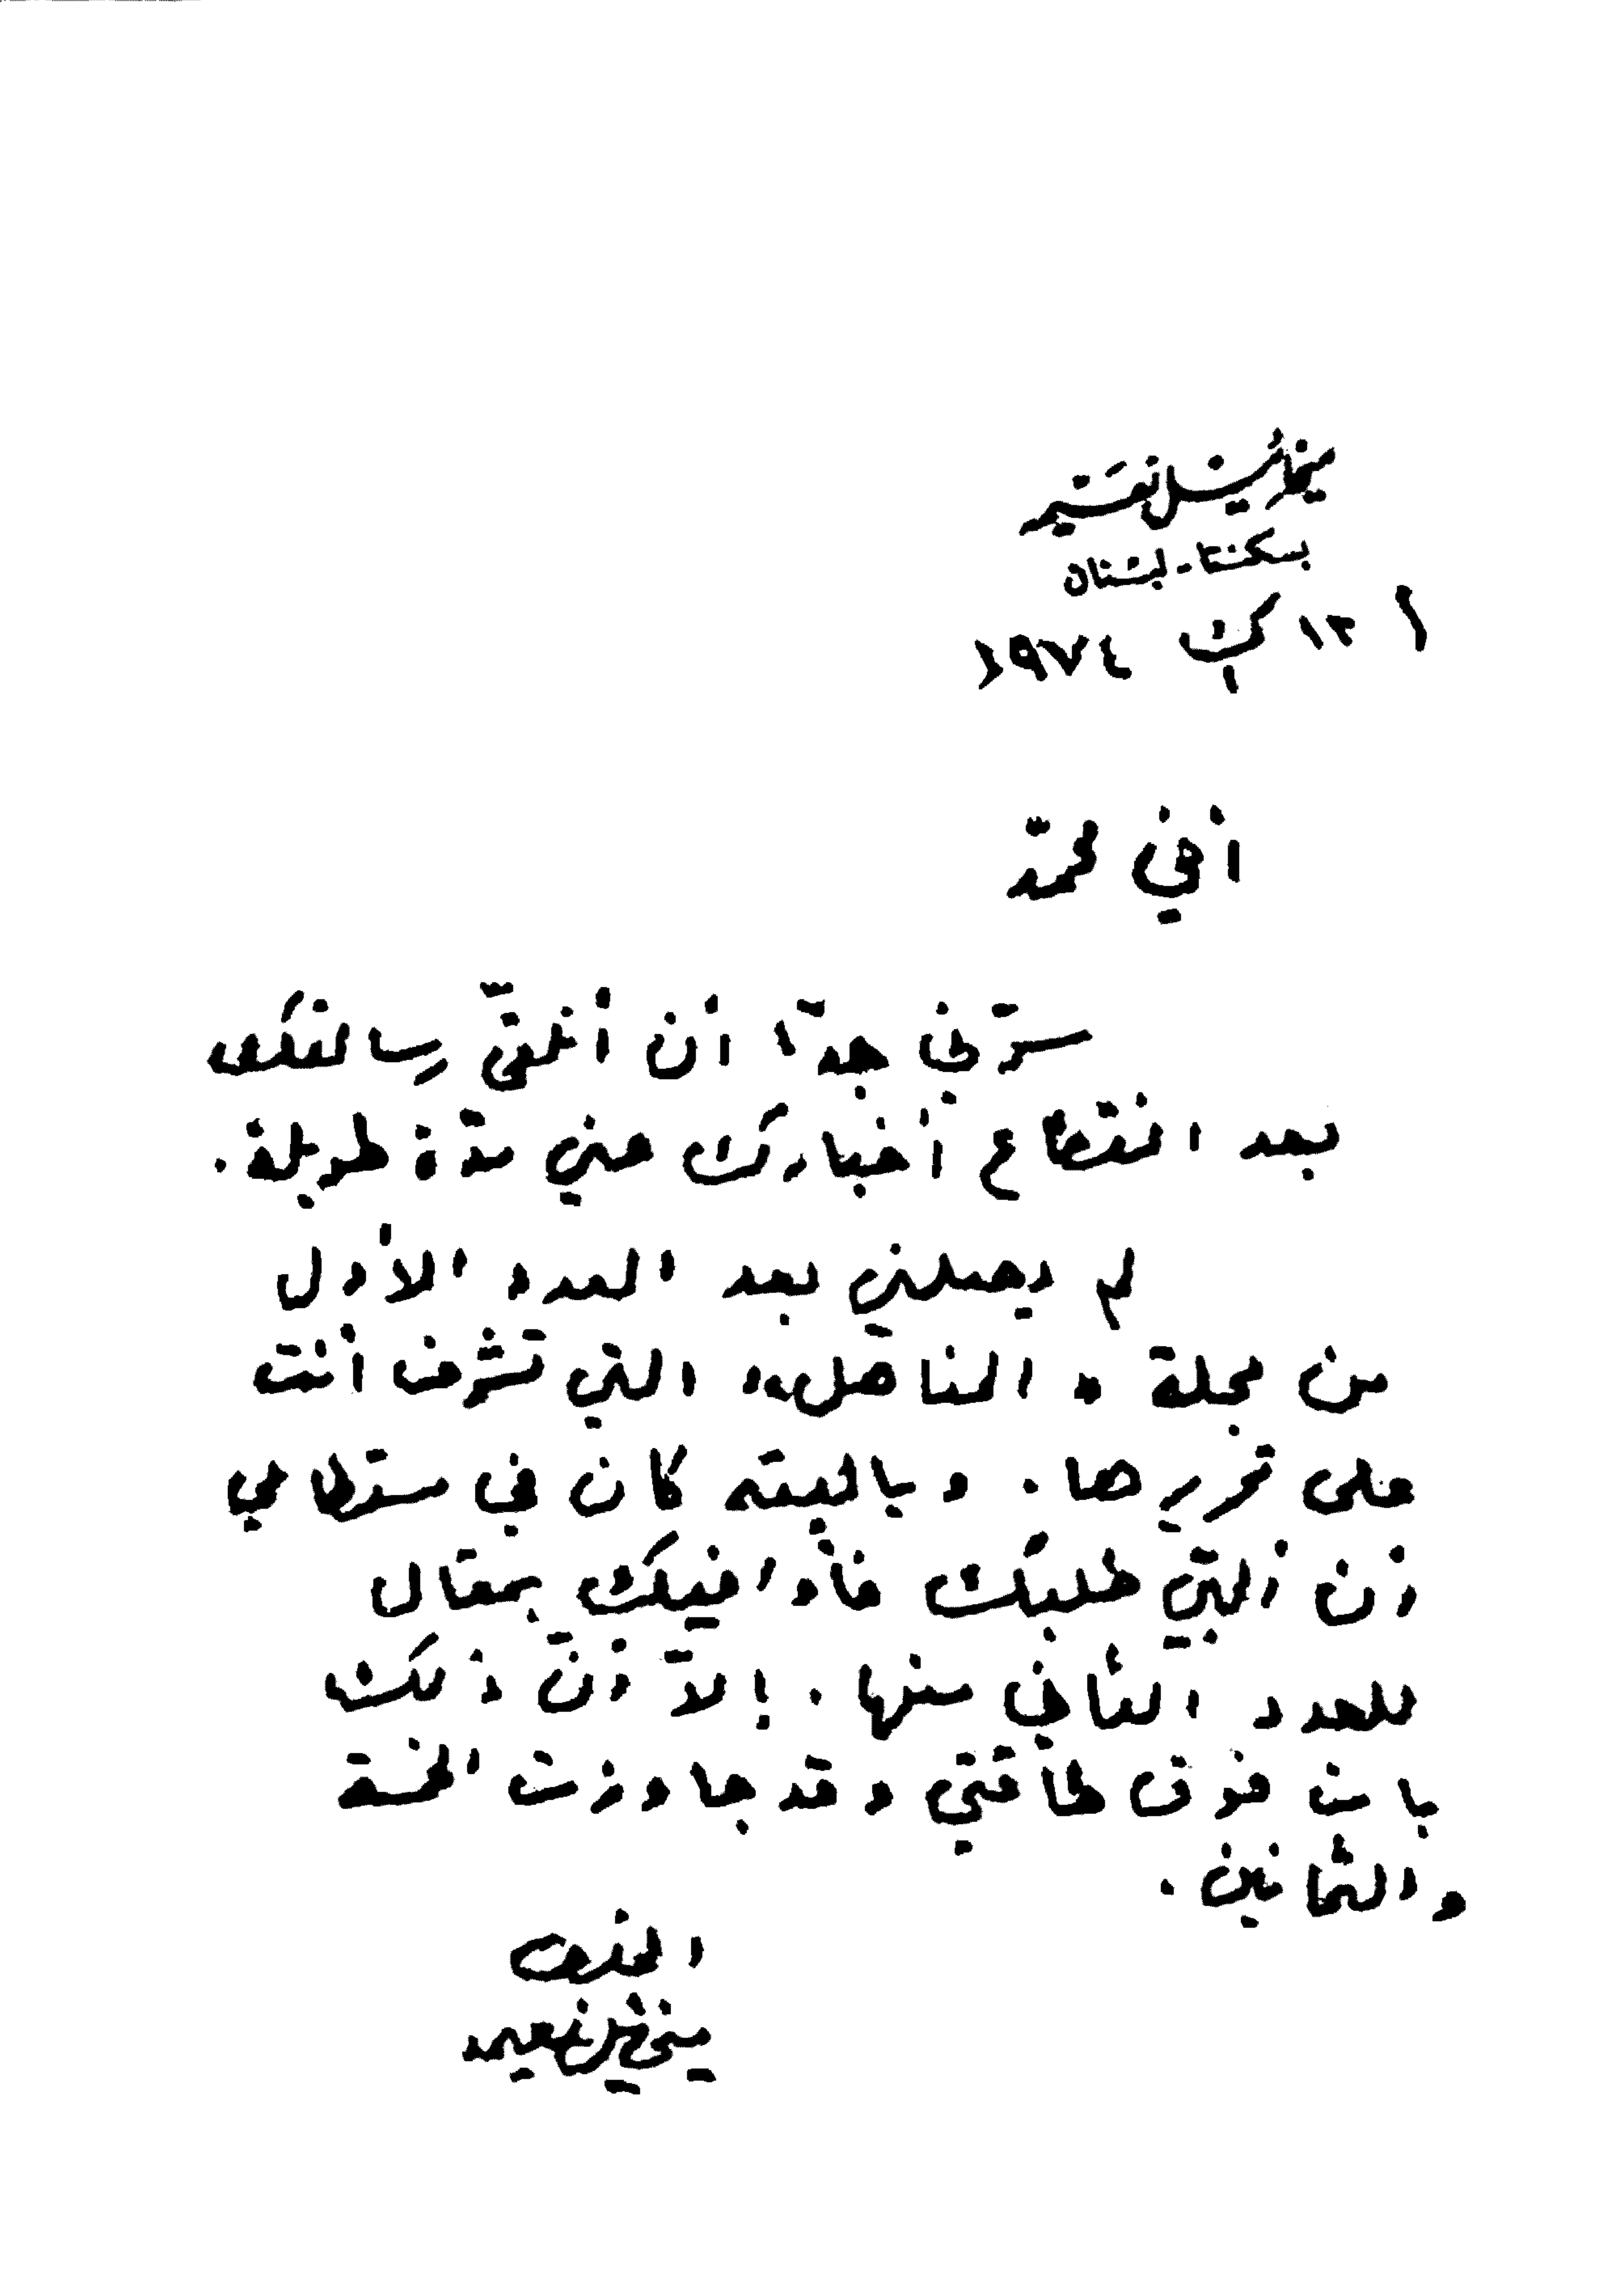 ميخائيل نعيمه
بسكنتا - لبنان
١٣ ك١ ١٩٧٤
أخي محمّد
سرّني جدّا أن أتلقّى رسالتك
بعد انقطاع أخبارك عني مدّة طويلة.
لم يصلني بعد العدد الأول
من مجلة «المناهل» التي تشرف أنت
على تحريرها. وياليته كان في مستطاعي
أن ألبّي طلبك فأوافيك بمقال
للعدد الثاني منها. إلاّ أنّ ذلك
بات فوق طاقتي وقد جاوزت الخمسة
والثمانين.
المخلص
ميخائيل نعيمه